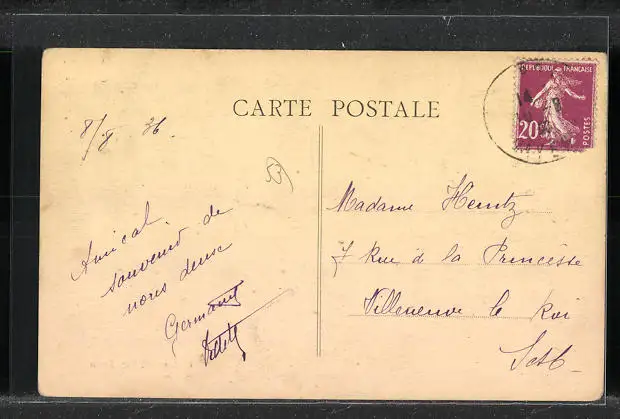 CARTE POSTALE
8/8 36.
59
Amical
souvenir de
nous deux
Germaine
REPUBLIQUE FRANÇAISE
20c
POSTES
Madame Hentz
7 Rue de la Princesse
Villeneuve le Roi
S et O